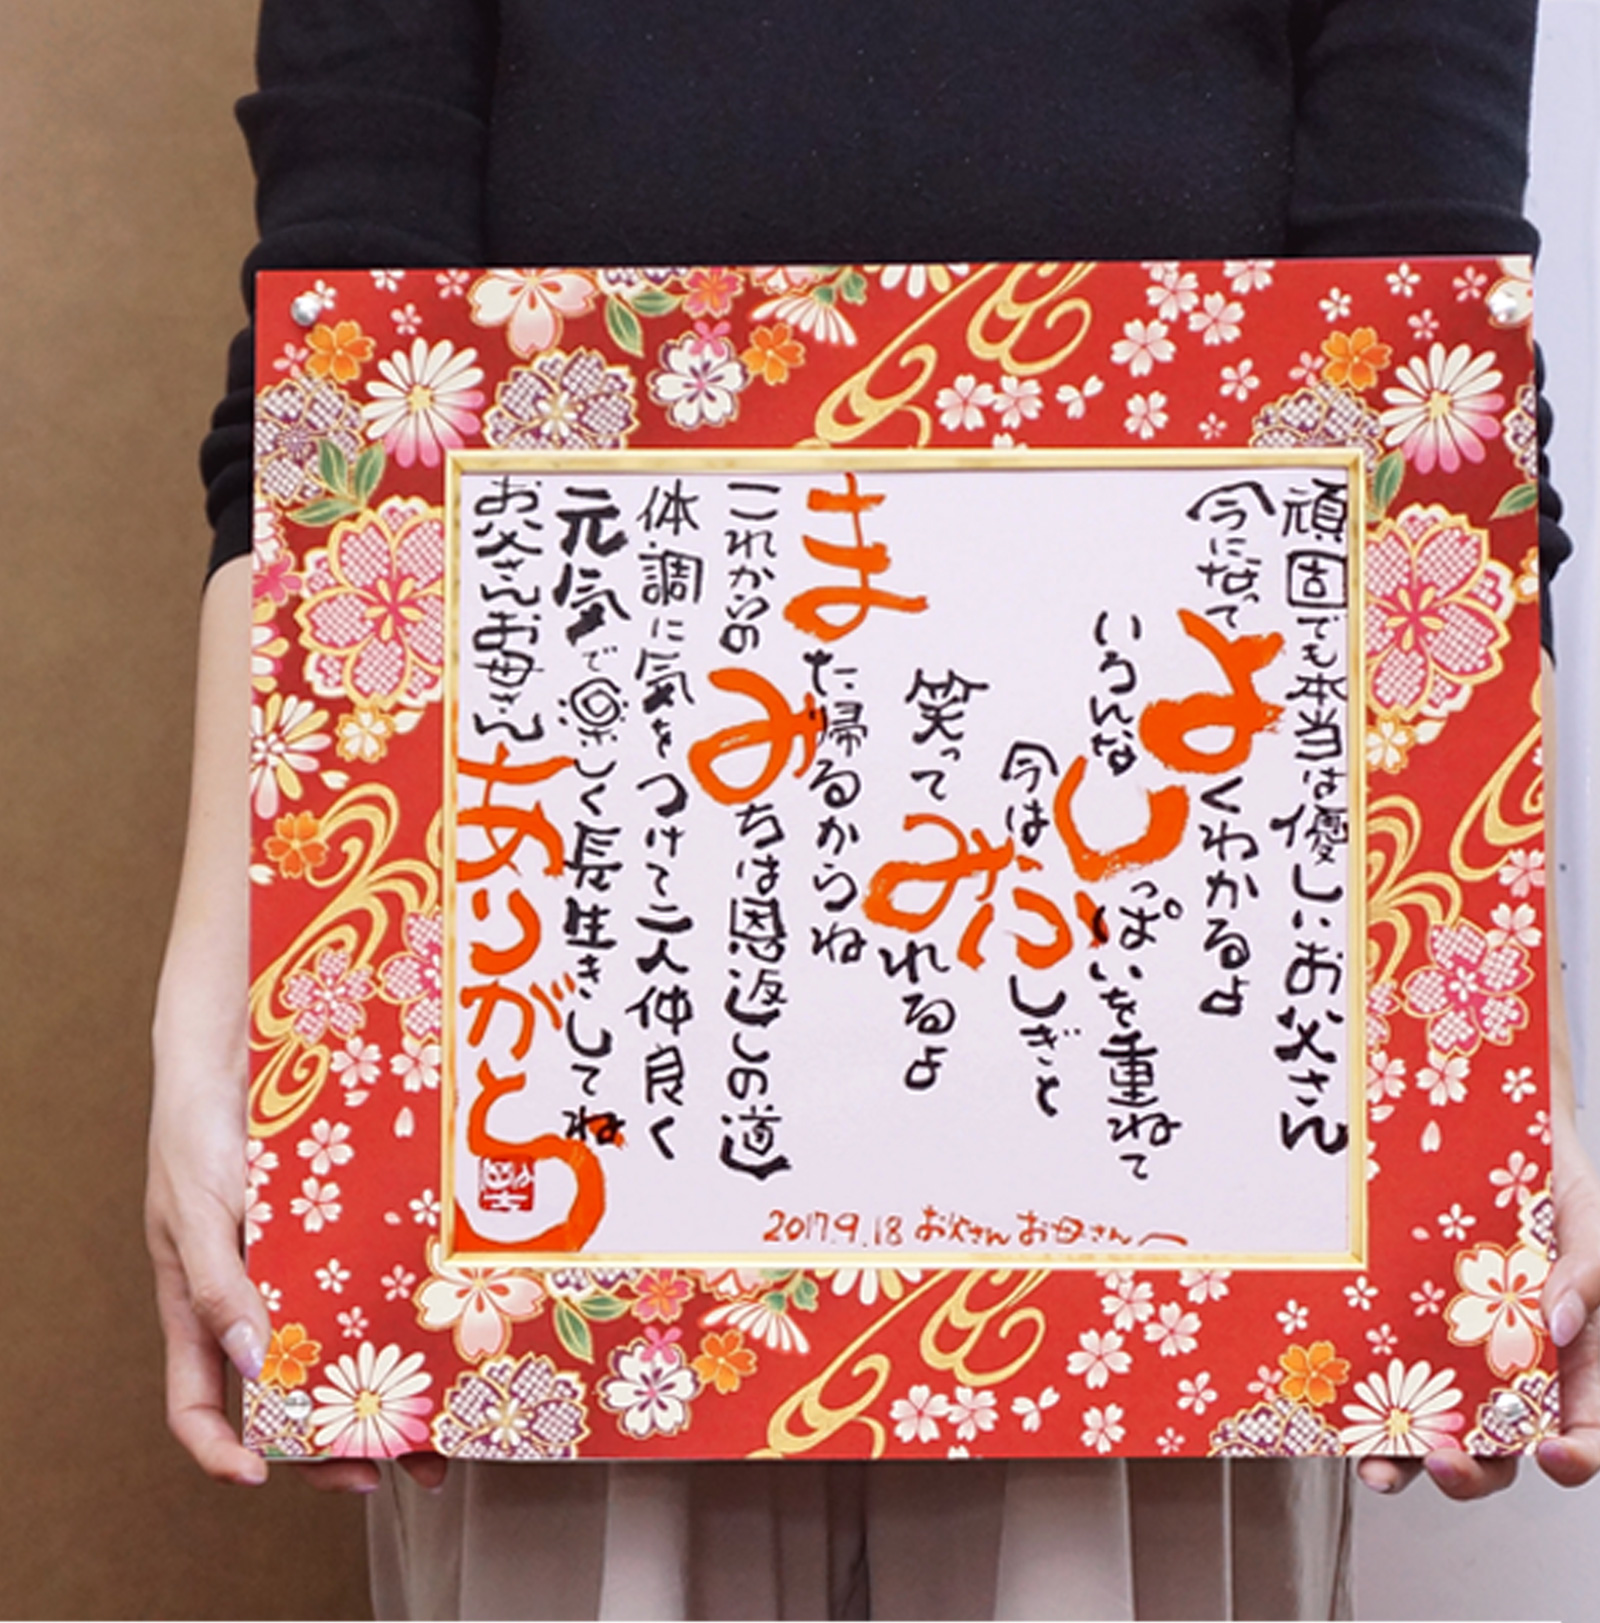 頑固でも本当は優しいお父さん
今になって
よくわかるよ
いろんな
いっぱいを重ねて
今は
おかしぎと
笑って
みれるよ
また帰るからね
これからの
みちは恩返しの道
体調に気をつけて二人仲良く
元気で楽しく長生きしてね
お父さんお母さん
ありがとう
2017.9.18 お父さんお母さんへ